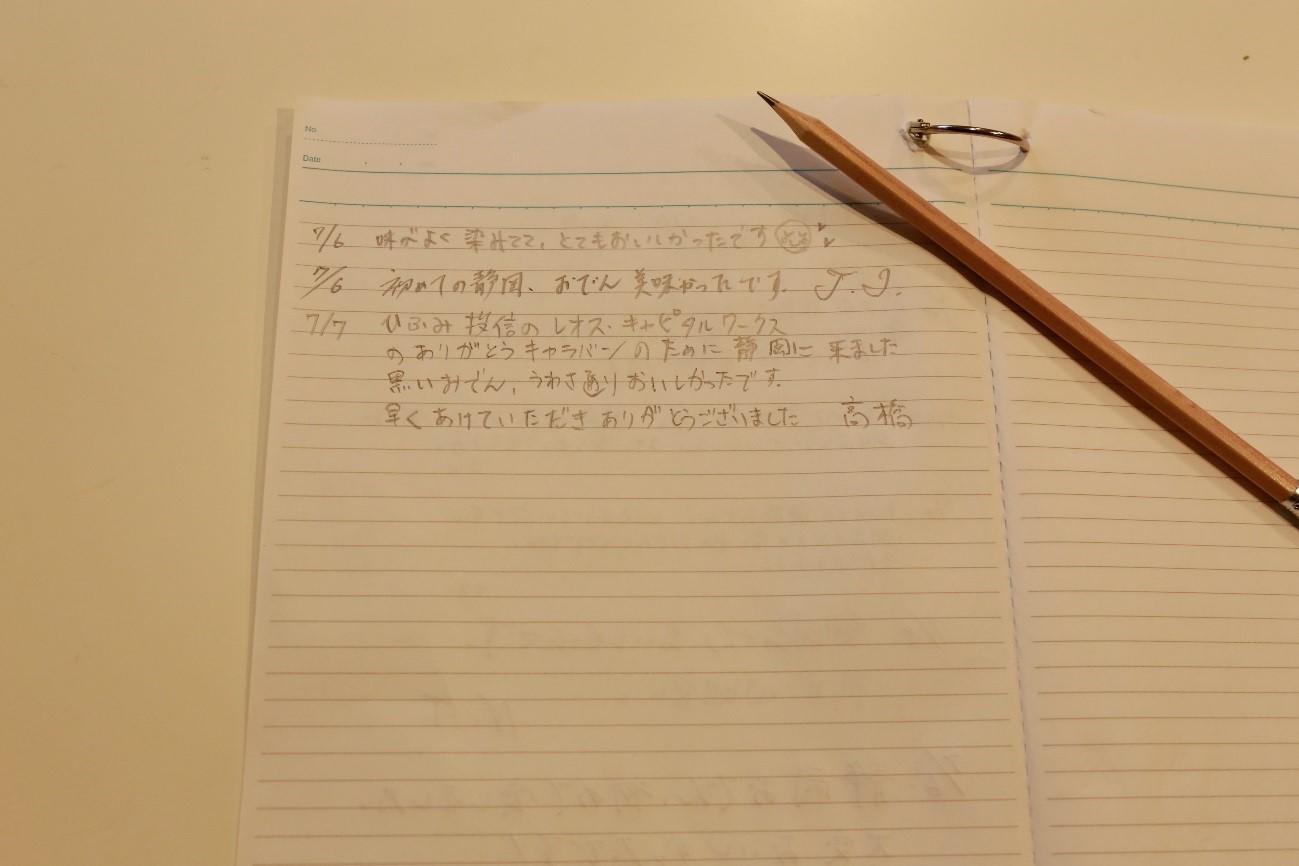 No.
Date
7/6 味がよく染みてて、とてもおいしかったです
7/6 初めての静岡、おでん美味かったです。 T.J.
7/7 ひふみ投信のレオス・キャピタルワークス
のありがとうキャラバンのために静岡に来ました
黒いおでん、うわさ通りおいしかったです。
早くあけていただきありがとうございました 高橋